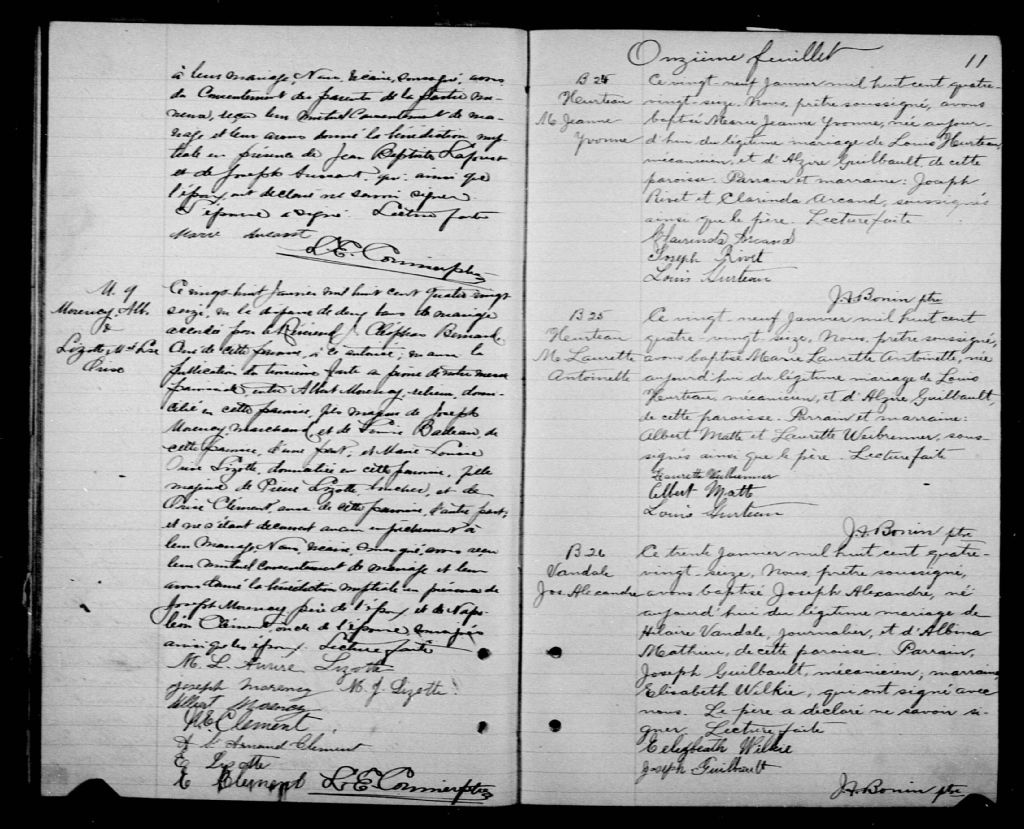 à leur mariage, Nous, vicaire, soussigné, avons
du Consentement des parents de la partie mi-
neure, reçu leur mutuel Consentement de ma-
riage et leur avons donné la bénédiction nup-
tiale en présence de Jean Baptiste
et de Joseph qui ainsi que
l'époux, ont déclaré ne savoir signer.
L'épouse a signé. Lecture faite
Marie
L. E. ptre
M. 9
Morency, Alb.
&
Lizotte, M. Lse
Ce vingt huit Janvier mil huit cent quatre vingt
seize, vu la dispense de deux bans de mariage
accordée par le Révérend J.
Curé de cette paroisse, à ce autorisé; vu aussi la
publication du troisième faite au prône de notre messe
paroissiale, entre Albert Morency, relieur, domi-
cilié en cette paroisse, fils majeur de Joseph
Morency, marchand, et de Badeau, de
cette paroisse, d'une part; et Marie Louise
Lizotte, domiciliée en cette paroisse, fille
majeure de Pierre Lizotte, boucher, et de
Clément, aussi de cette paroisse, d'autre part;
et ne s'étant découvert aucun empêchement à
leur mariage, Nous, vicaire, soussigné, avons reçu
leur mutuel consentement de mariage et leur
avons donné la bénédiction nuptiale en présence de
Joseph Morency, père de l'époux, et de Napo-
léon Clément, oncle de l'épouse, soussignés
ainsi que les époux. Lecture faite
M. L. Lizotte
Joseph Morency M. J. Lizotte
Albert Morency
N. E. Clement,
Armand Clement
E Lizotte
E Clement L. E. ptre
Onzième feuillet 11
B 24
Heurteau
M. Jeanne
Yvonne
Ce vingt neuf Janvier mil huit cent quatre-
vingt-seize, Nous, prêtre soussigné, avons
baptisé Marie Jeanne Yvonne, née aujour-
d'hui du légitime mariage de Louis Heurteau,
mécanicien, et d'Alzire Guilbault, de cette
paroisse. Parrain et marraine: Joseph
Rivet et Clarinda Arcand, soussignés
ainsi que le père. Lecture faite
Clarinda Arcand
Joseph Rivet
Louis Hurteau
J. A. Bonin ptre
B 25
Heurteau
M. Laurette
Antoinette
Ce vingt neuf Janvier mil huit cent
quatre-vingt seize, Nous, prêtre soussigné,
avons baptisé Marie Laurette Antoinette, née
aujourd'hui du légitime mariage de Louis
Heurteau, mécanicien, et d'Alzire Guilbault,
de cette paroisse. Parrain et marraine:
Albert Matte et Laurette Weibrenner, sous-
signés ainsi que le père. Lecture faite
Laurette Weibrenner
Albert Matte
Louis Hurteau
J. A. Bonin ptre
B 26
Vandale
Jos. Alexandre
Ce trente Janvier mil huit cent quatre-
vingt-seize, Nous, prêtre soussigné,
avons baptisé Joseph Alexandre, né
aujourd'hui du légitime mariage de
Hilaire Vandale, journalier, et d'Albina
Mathieu, de cette paroisse. Parrain,
Joseph Guilbault, mécanicien; marraine
Elisabeth Wilkie, qui ont signé avec
nous. Le père a déclaré ne savoir si-
gner. Lecture faite
Eelizbeath Wilkie
Joseph Guilbault
J. A. Bonin ptre